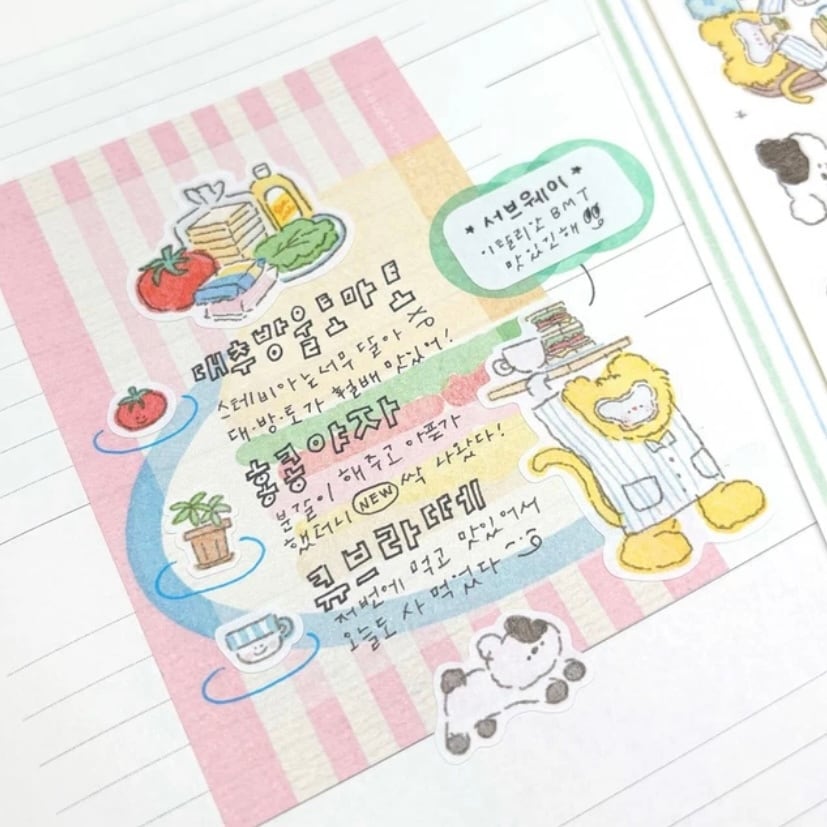 * 서브웨이 *
이탈리안 BMT
맛있긴해
대추방울토마토
스테비아는 너무 달아
대·방·토가 훨배 맛있어!
홍콩야자
분갈이 해주고 아프가
했더니 NEW 싹 나왔다!
큐브라떼
저번에 먹고 맛있어서
오늘도 사 먹었다~